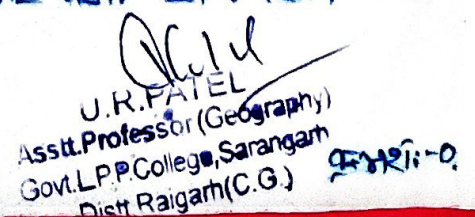 U.R.PATEL
Asstt.Professor(Geography)
Govt.L.P.P.College,Sarangarh
Distt.Raigarh(C.G.)